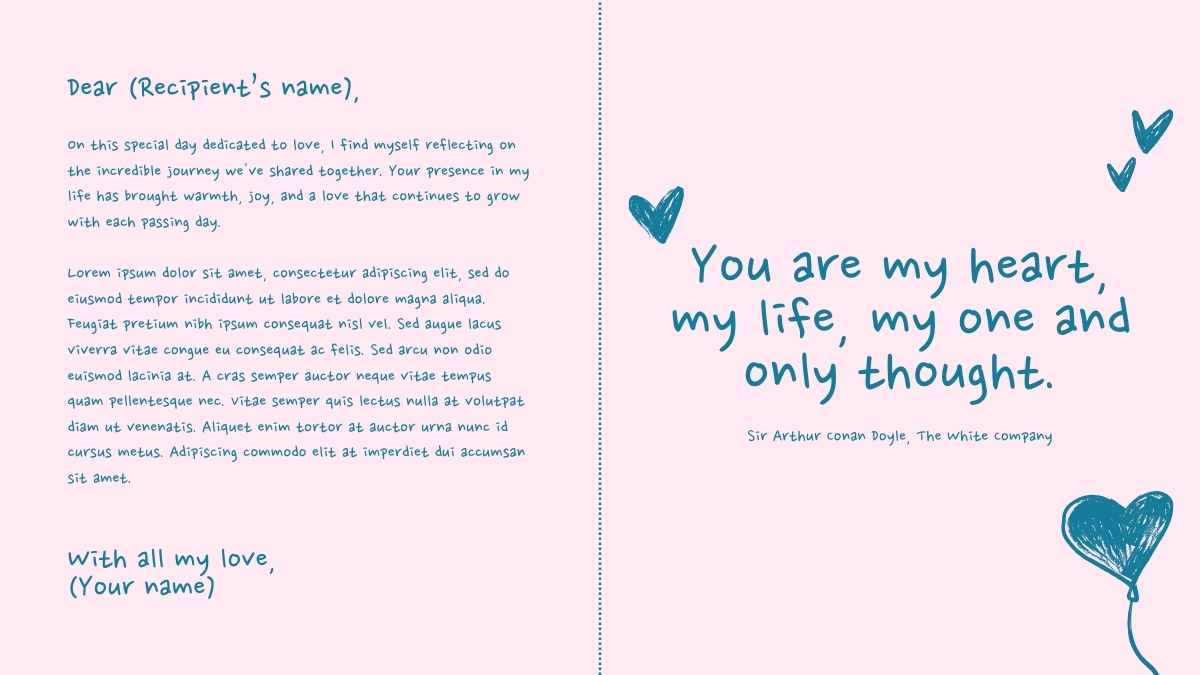 Dear (Recipient's name),
On this special day dedicated to love, I find myself reflecting on
the incredible journey we've shared together. Your presence in my
life has brought warmth, joy, and a love that continues to grow
with each passing day.
Lorem ipsum dolor sit amet, consectetur adipiscing elit, sed do
eiusmod tempor incididunt ut labore et dolore magna aliqua.
Feugiat pretium nibh ipsum consequat nisl vel. Sed augue lacus
viverra vitae congue eu consequat ac felis. Sed arcu non odio
euismod lacinia at. A cras semper auctor neque vitae tempus
quam pellentesque nec. Vitae semper quis lectus nulla at volutpat
diam ut venenatis. Aliquet enim tortor at auctor urna nunc id
cursus metus. Adipiscing commodo elit at imperdiet dui accumsan
sit amet.
With all my love,
(Your name)
You are my heart,
my life, my one and
only thought.
Sir Arthur Conan Doyle, The White Company